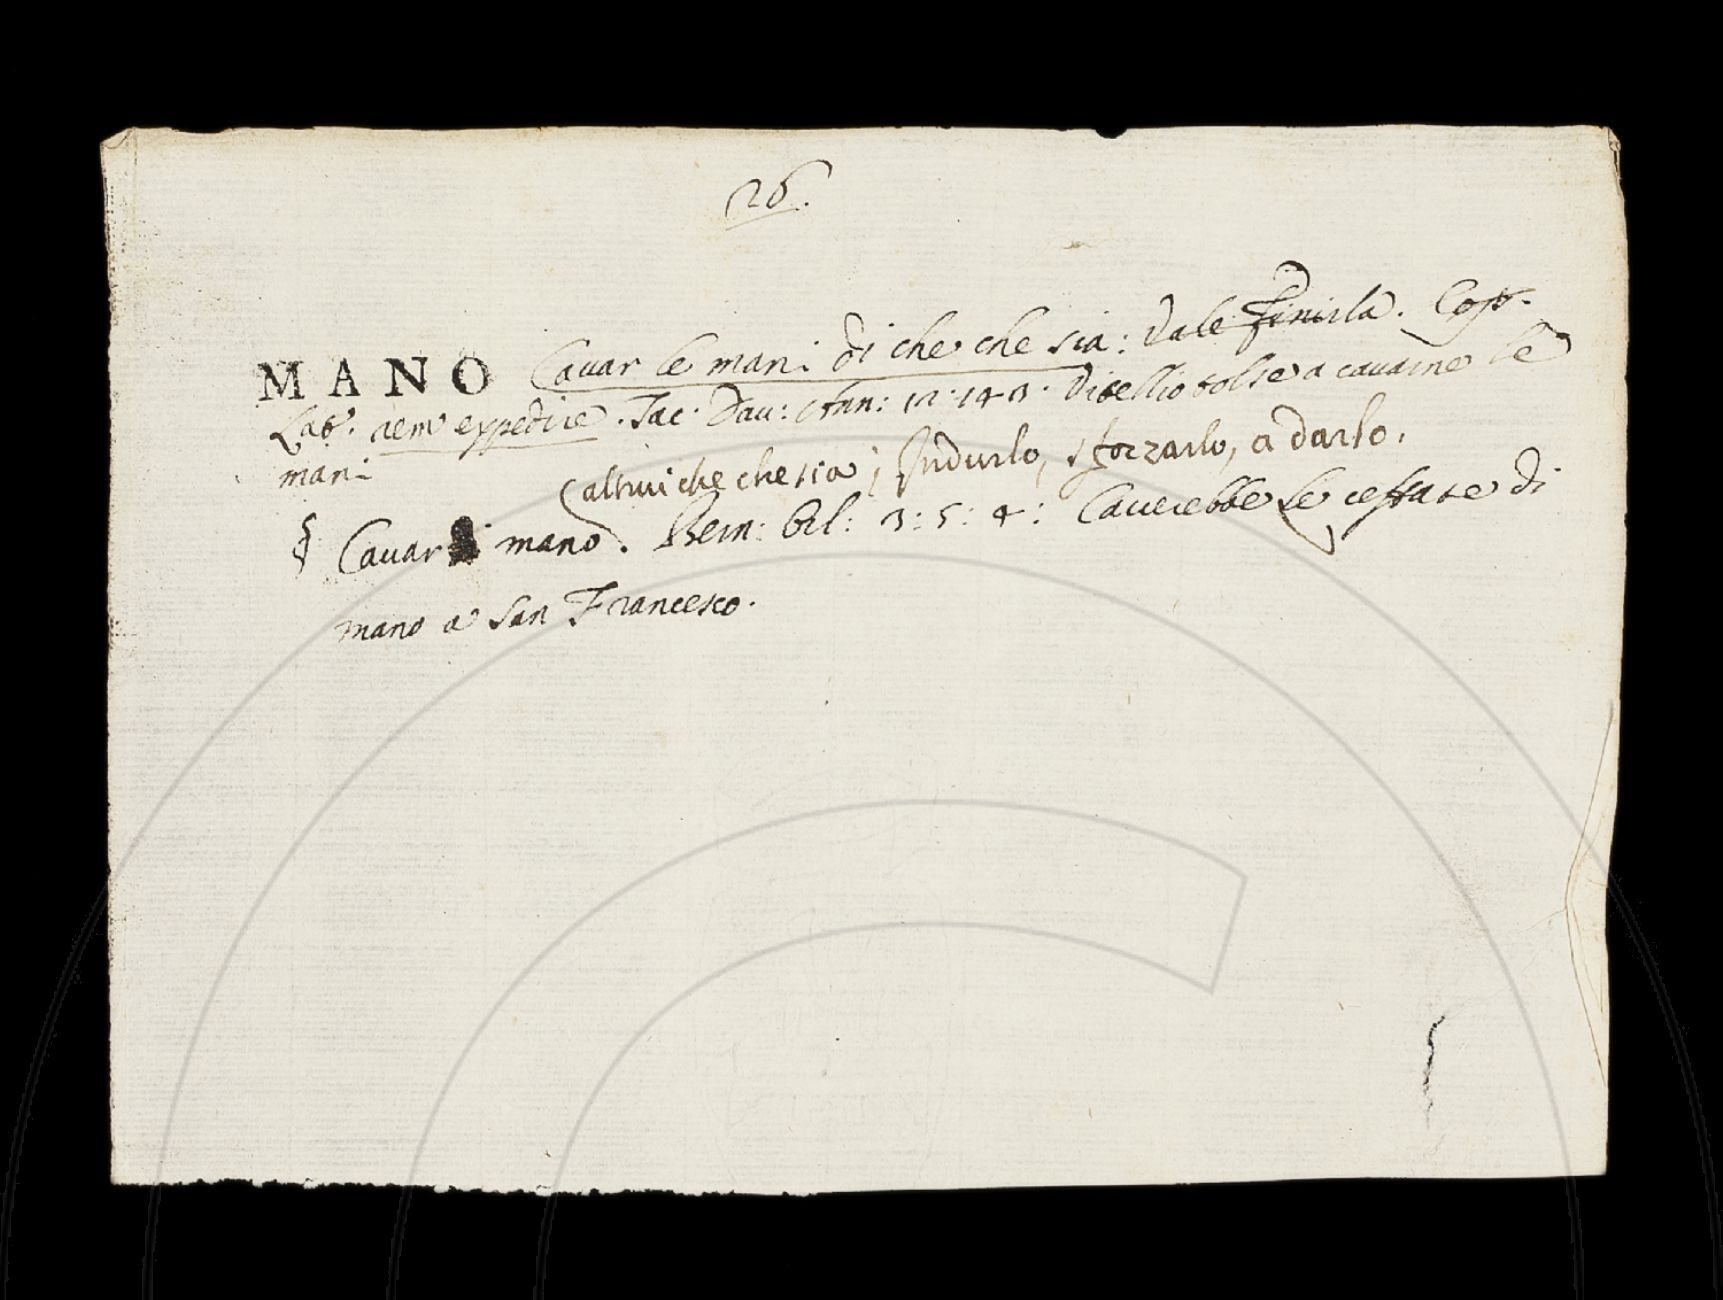 26.
MANO Cavar le mani di che che sia: Vale Finirla.
Lat. rem expedire. Tac. Dav: Ann: 12. 143. Vitellio tolse a cavarne le
mani
altrui che che sia; Indurlo, sforzarlo, a darlo.
§ Cavar mano. Bern: Orl: 3: 5: 4: Caverebbe le ceffate di
mano a San Francesco.